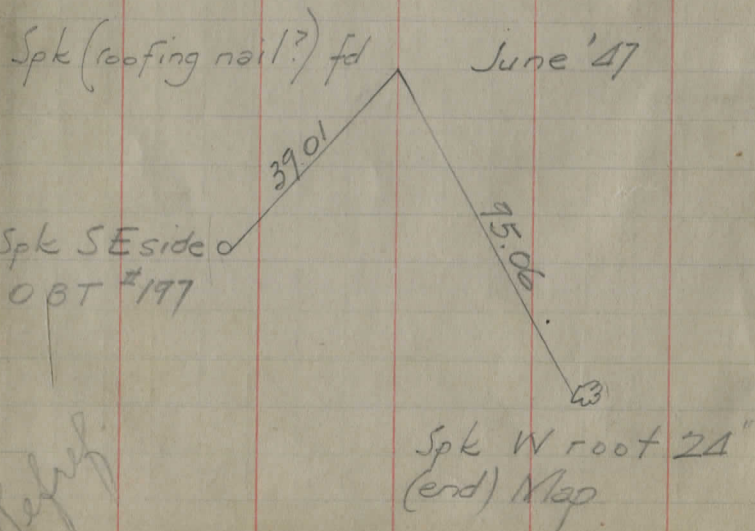 Spk (roofing nail?) fd June '47
39.01
75.06
Spk SE side
O B T #197
Spk W root 24"
(end) Map